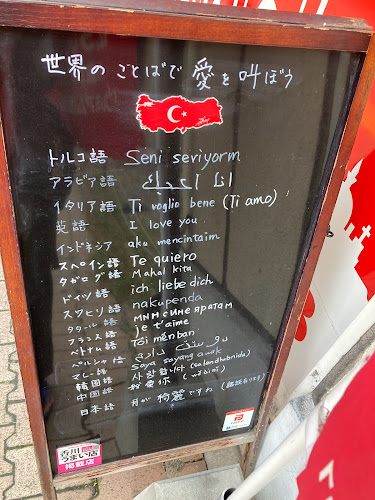 世界のことばで愛を叫ぼう
トルコ語 Seni seriyorm
アラビア語 انا احبك
イタリア語 Ti voglio bene (Ti amo)
英語 I love you
インドネシア aku mencintaim
スペイン語 Te quiero
タガログ語 Mahal kita
ドイツ語 ich liebe dich
スワヒリ語 nakupenda
タタール語 мин сине яратам
フランス語 je t'aime
ベトナム語 Tôi mên ban
ペルシャ語
マレー語 saya sayang awak
韓国語 사랑합니다 (salanghabnida)
中国語 我爱你
日本語 月が綺麗ですね
香川
うまい店
掲載店